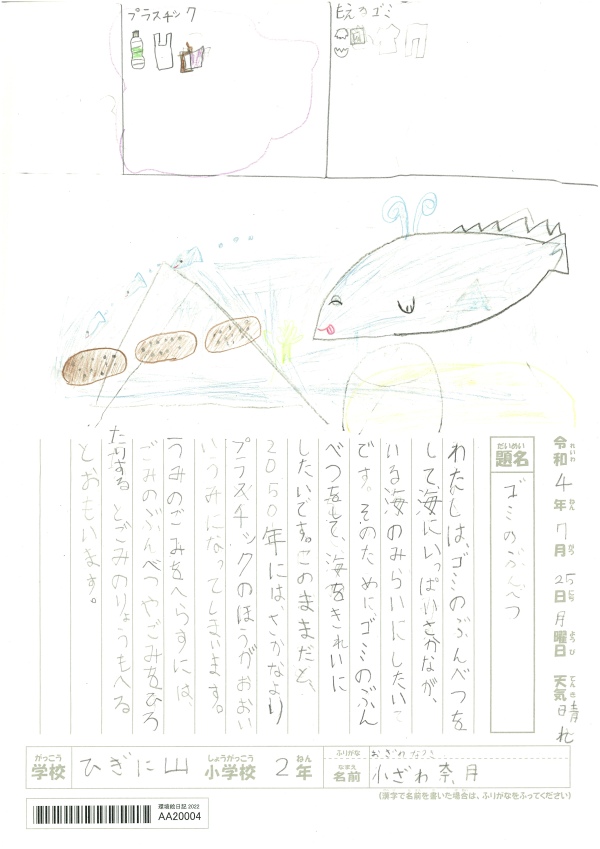 プラスチック
もえるゴミ
令和4年7月25日月曜日 天気 晴れ
れいわ ねん がつ にち ようび てんき
だいめい
題名
ゴミのぶんべつ
わたしは、ゴミのぶんべつを
して、海にいっぱいさかなが、
いる海のみらいにしたいで
です。そのために、ゴミのぶん
べつをして、海をきれいに
したいです。このままだと、
2050年には、さかなより
プラスチックのほうがおおい
いうみになってしまいます。
うみのごみをへらすには、
ごみのぶんべつやごみをひろ
たりするとごみのりょうもへる
とおもいます。
がっこう
学校
ひぎに山
しょうがっこう
小学校
2
ねん
年
ふりがな
おざわ なつき
なまえ
名前
小ざわ奈月
(漢字で名前を書いた場合は、ふりがなをふってください)
環境絵日記 2022
AA20004